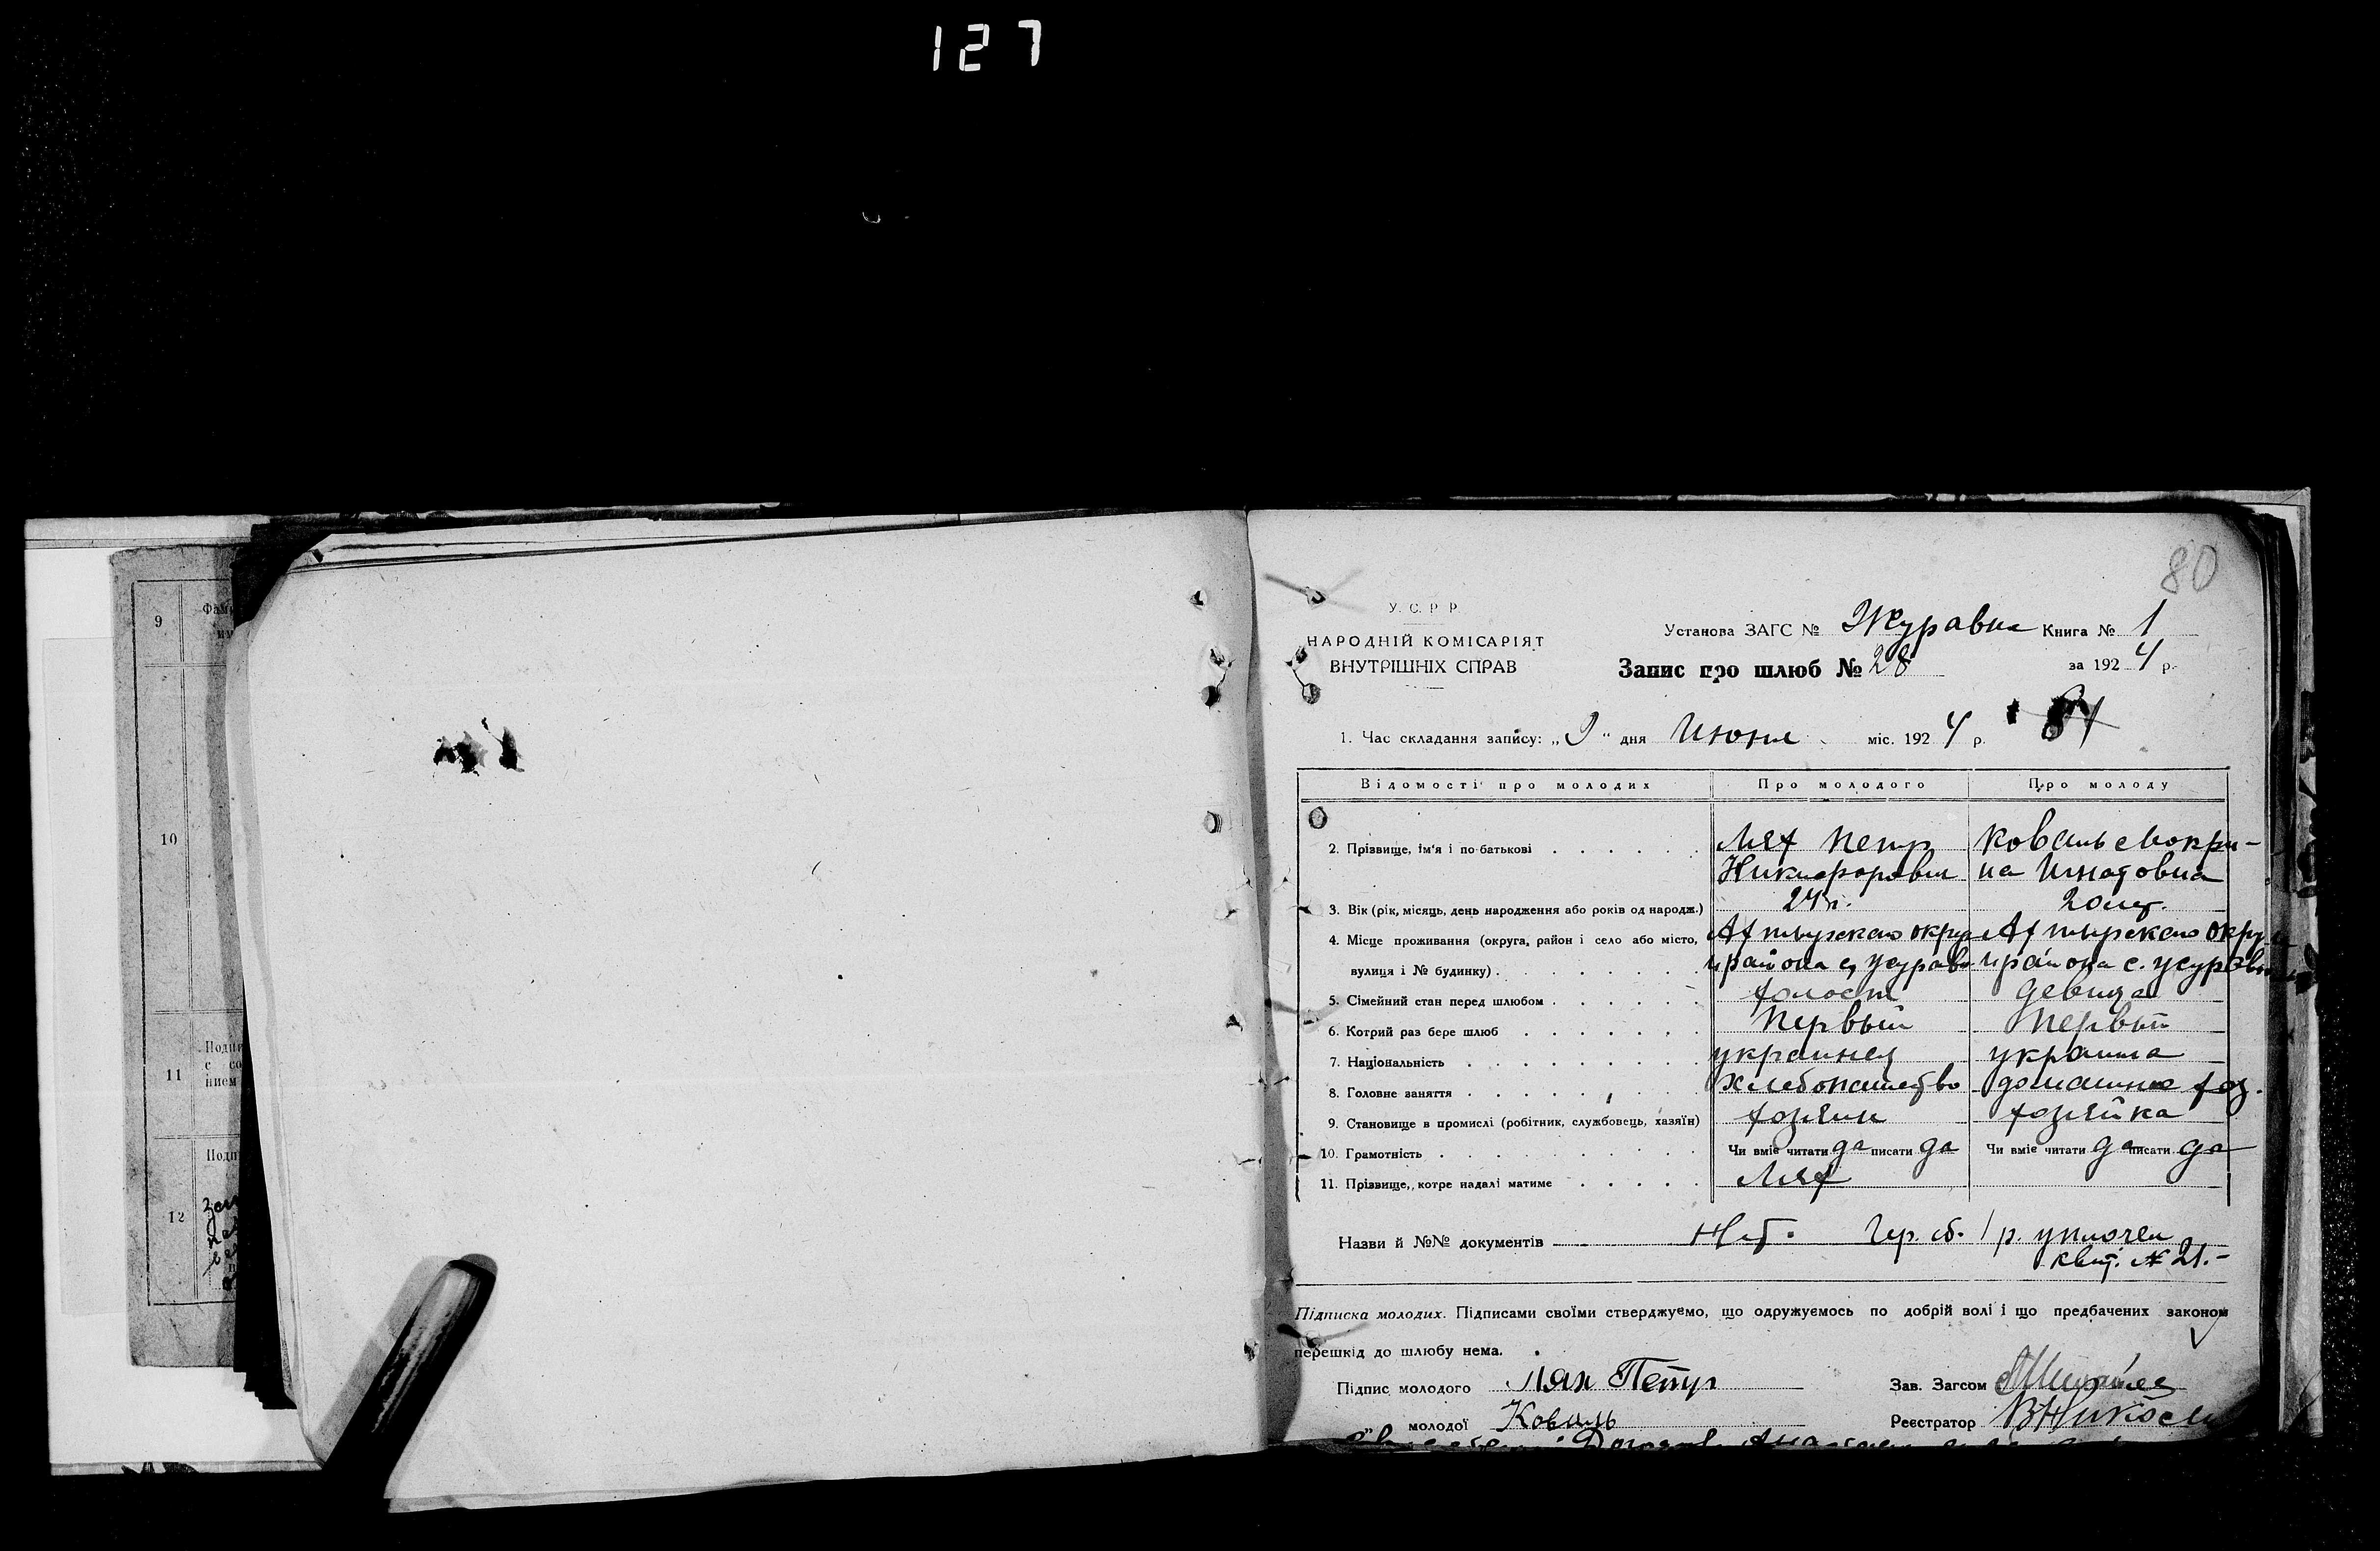 127
9
10
11
12
80
У. С. Р. Р.
НАРОДНІЙ КОМІСАРІЯТ
ВНУТРІШНІХ СПРАВ
Установа ЗАГС № Журавна Книга № 1
Запис про шлюб № 28 за 1924 р.
1. Час складання запису: „9" дня Июня міс. 1924 р.
Відомості про молодих Про молодого Про молоду
2. Прізвище, ім'я і по-батькові Лях Петр Коваль Мокри-
Никифорович на Игнатовна
3. Вік (рік, місяць, день народження або років од народж.) 24 г. 20 лет.
4. Місце проживання (округа, район і село або місто, Ахтырскаго округа Ахтырскаго округа
вулиця і № будинку) . и района с. Журавн и района с. Журавн
5. Сімейний стан перед шлюбом . холост девица
6. Котрий раз бере шлюб первый первый
7. Національність украинец украинка
8. Головне заняття хлебопашество домашнее хоз.
9. Становище в промислі (робітник, службовець, хазяїн) хозяин хозяйка
10. Грамотність Чи вміє читати да писати да Чи вміє читати да писати да
11. Прізвище, котре надалі матиме Лях
Назви й №№ документів Нет. Гр. сб. 1 р. уплочен
квит. № 21.-
Підписка молодих. Підписами своїми стверджуємо, що одружуємось по добрій волі і що предбачених законом
перешкід до шлюбу нема.
Підпис молодого Лях Петр Зав. Загсом
„ молодої Коваль Реєстратор